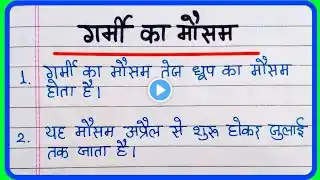 गर्मी का मौसम
1. गर्मी का मौसम तेज धूप का मौसम
होता है।
2. यह मौसम अप्रैल से शुरू होकर जुलाई
तक जाता है।